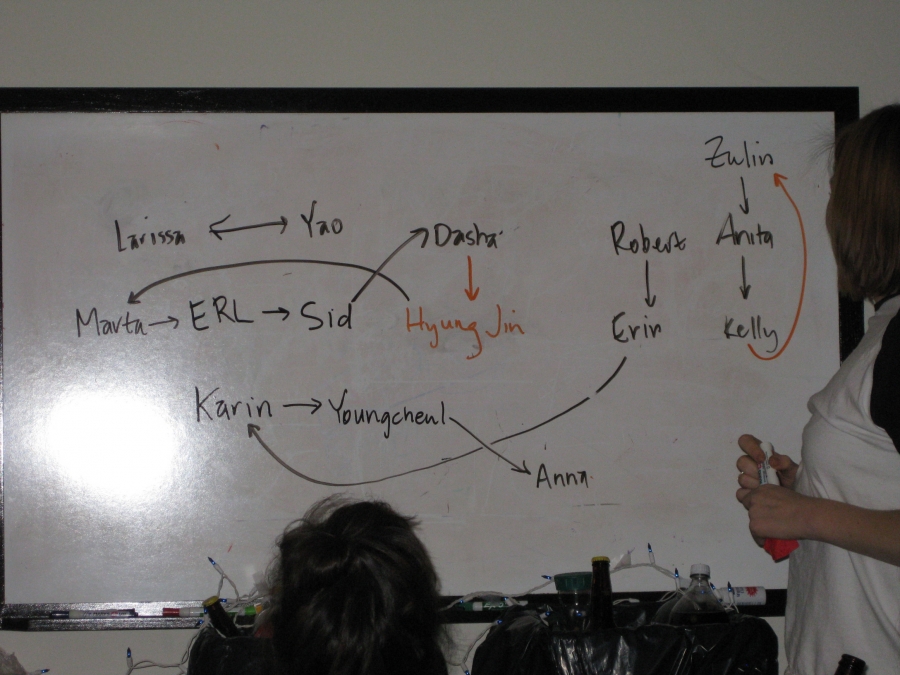 Zulin
Larissa ↔ Yao
Dasha
Robert
Anita
Marta → ERL → Sid
Hyung Jin
Erin
Kelly
Karin → Youngcheul
Anna